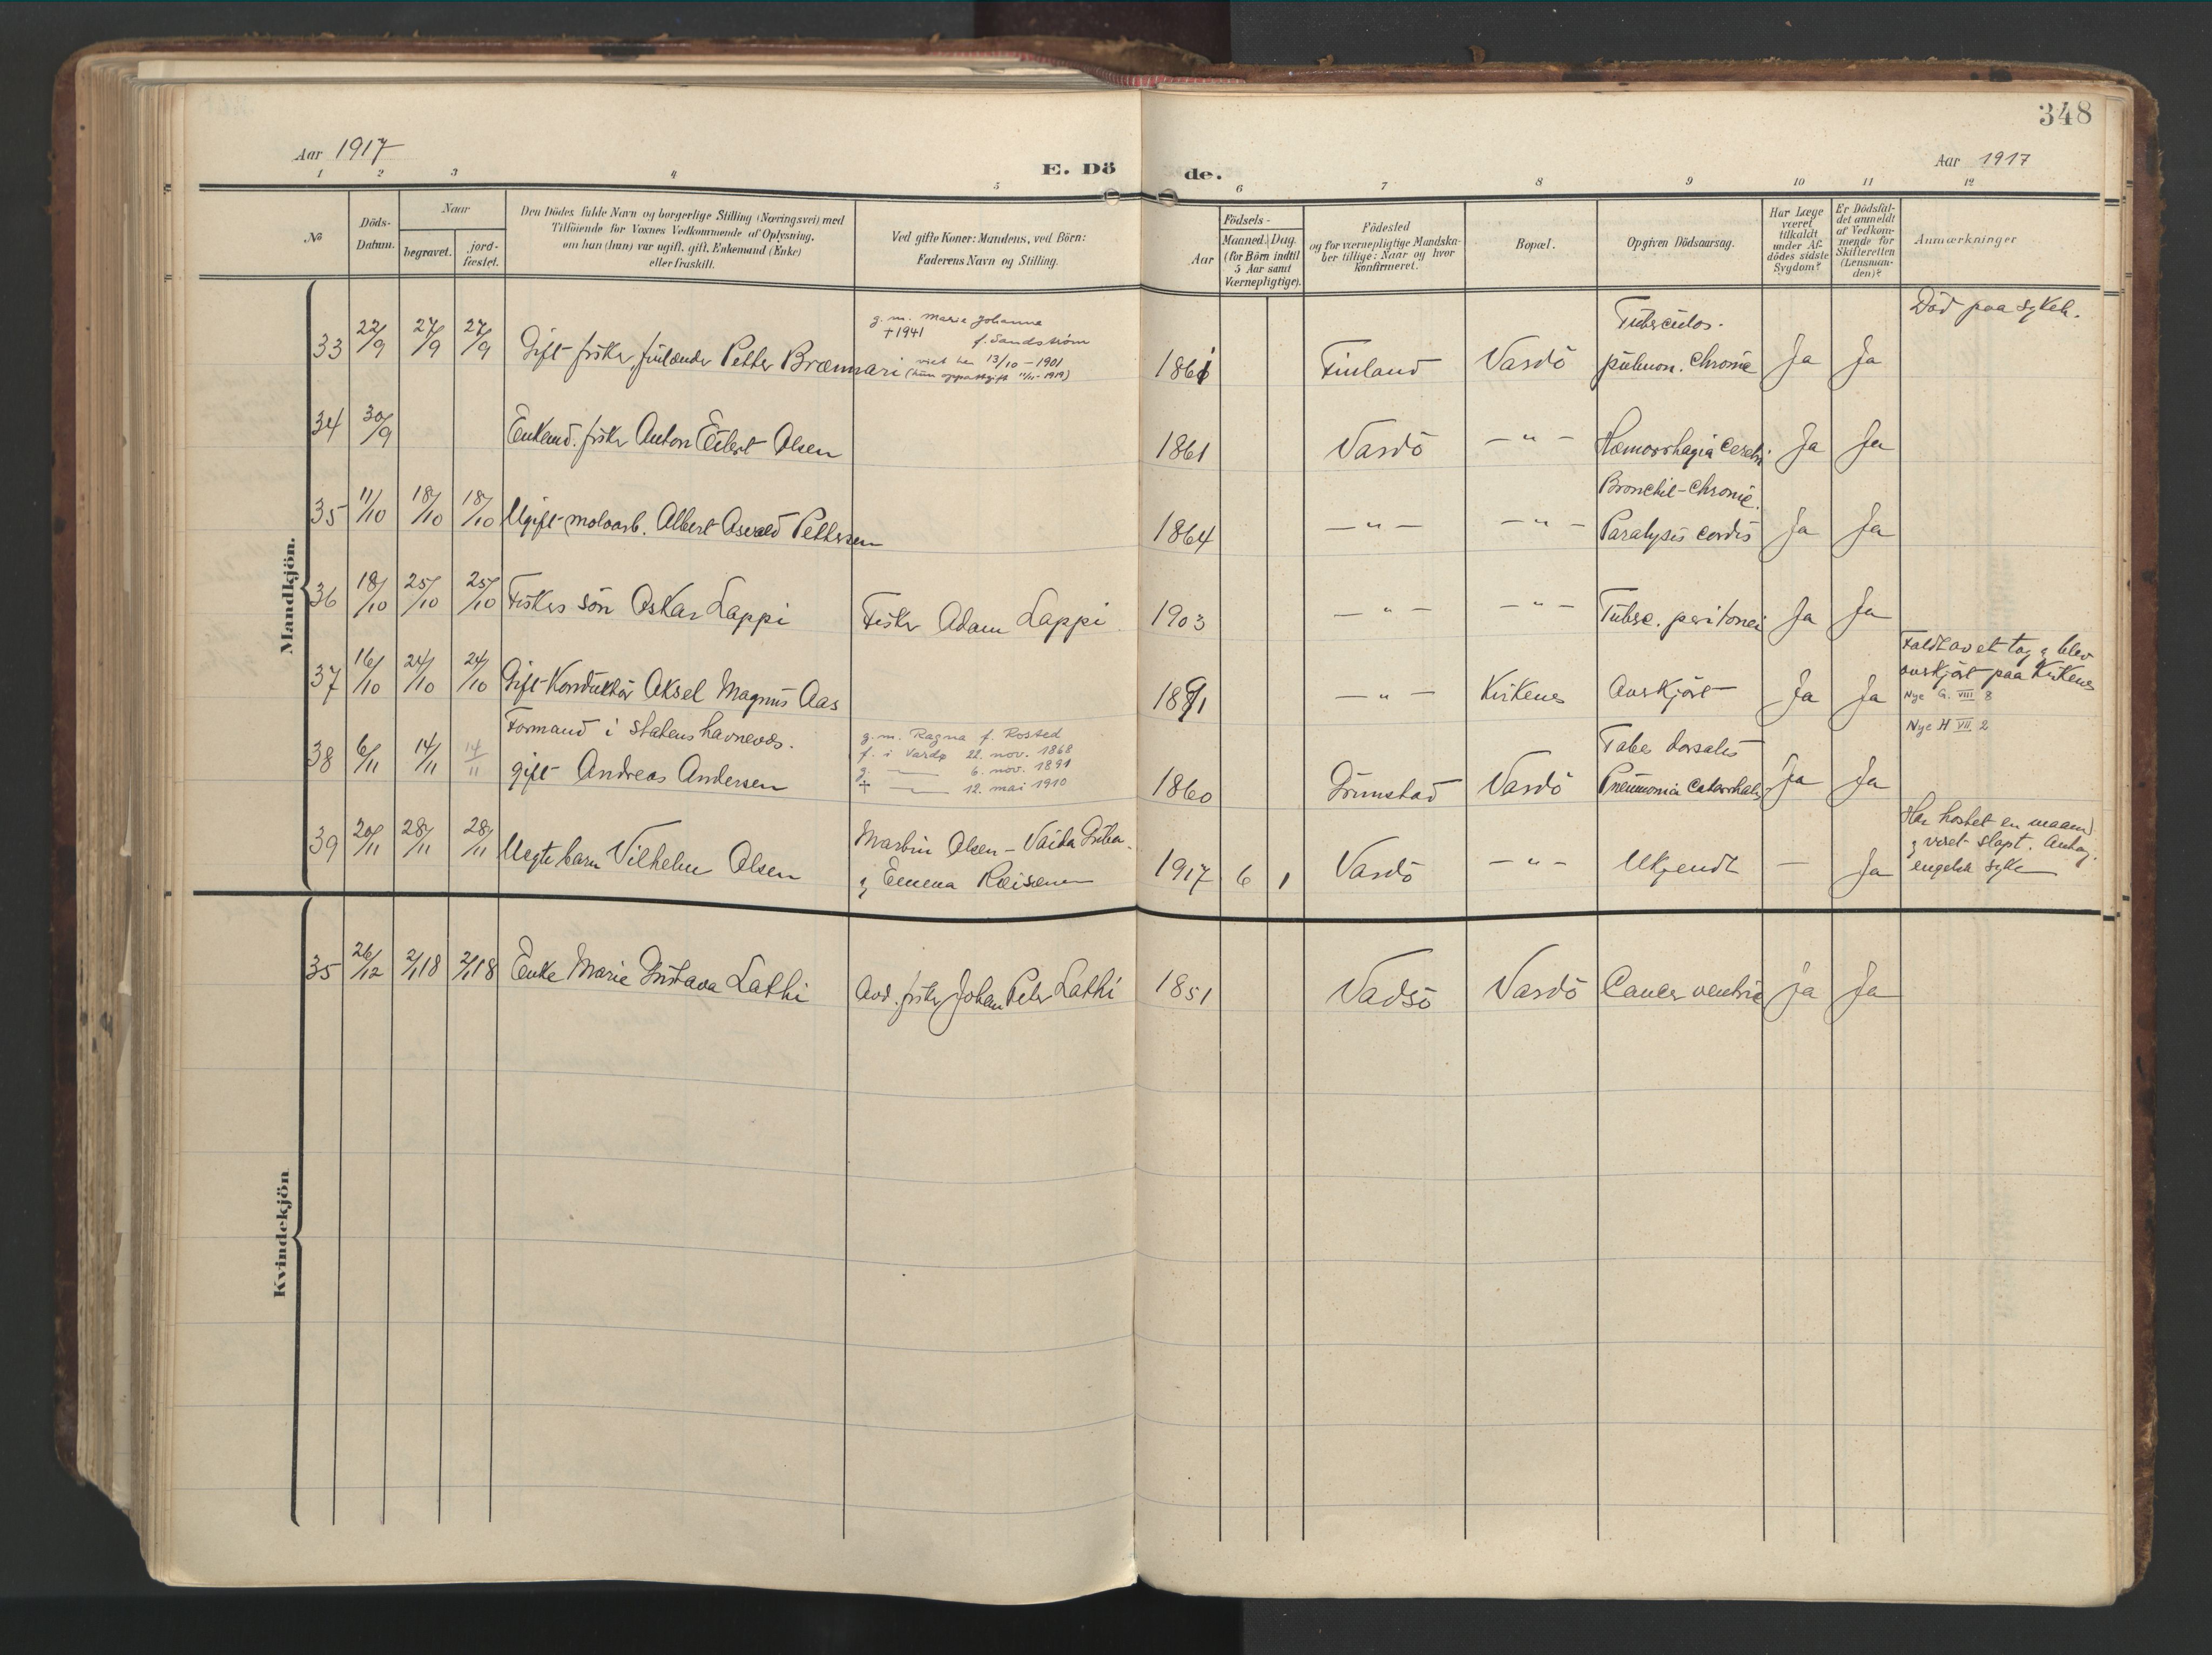 348
Aar 1917
E. Dö
de.
Aar 1917
1 2 3 4 5 6 7 8 9 10 11 12
№
Döds-
Datum.
Naar
begravet.
jord-
fæstet.
Den Dödes fulde Navn og borgerlige Stilling (Næringsvei) med
Tilföiende for Voxnes Vedkommende af Oplysning,
om han (hun) var ugift, gift, Enkemand (Enke)
eller fraskilt.
Ved gifte Koner: Mandens, ved Börn:
Faderens Navn og Stilling.
Födsels-
Aar
Maaned. Dag.
(for Börn indtil
5 Aar samt
Værnepligtige).
Födested
og for værnepligtige Mandska-
ber tillige: Naar og hvor
konfirmeret.
Bopæl.
Opgiven Dödsaarsag.
Har Læge
været
tilkaldt
under Af-
dödes sidste
Sygdom?
Er Dödsfal-
det anmeldt
af Vedkom-
mende for
Skifteretten
(Lensman-
den)?
Anmærkninger
Mandkjön.
33 22/9 27/9 27/9 Gift fisker, finlænder Petter Brænnari
g. m. Marie Johanna
+1941 f. Sandström
viet her 13/10 - 1901
(hun oppattgift 11/11-1919)
1861 Finland Vardö
Tuberculos.
pulmon. chronic Ja Ja
Död paa sykeh.
34 30/9 Enkemd. fisker Anton Eilert Olsen
1861 Vardö - " - Hæmorrhagia cerebri Ja Ja
35 11/10 18/10 18/10 Ugift moloarb. Albert Osvald Pettersen
1864 - " - - " -
Bronchit-chronic.
Paralysis cordis Ja Ja
36 18/10 25/10 25/10 Fiskers sön Oskar Lappi
Fisker Adam Lappi
1903 - " - - " - Tuberc. peritonei Ja Ja
37 16/10 24/10 24/10 Gift Konduktör Aksel Magnus Aas
1891 - " - Kirkenes Overkjört Ja Ja
Faldt av et tog og blev
overkjört paa Kirkenes
Nye G. VIII 8
38 6/11 14/11 14/11
Formand i statens havnevæs.
gift Andreas Andersen
g. m. Ragna f. Rosted
f. i Vardø 22. nov. 1868
g. — 6. nov. 1891
+ — 12. mai 1910
1860 Grimstad Vardö
Tabes dorsalis
Pneumonia catarrhalis Ja Ja
Nye H VII 2
39 20/11 28/11 28/11 Uegte barn Vilhelm Olsen
Martin Olsen -
og Emma
1917 6 1 Vardö - " - Ukjendt — Ja
Har hostet en maaned
og været slapt. Antag.
engelsk syke
Kvindekjön
35 26/12 2/1 18 2/1 18 Enke Marie Gustava Lathi
Avd. fisker Johan Peter Lathi
1851 Vadsö Vardö Cancer ventric ja Ja